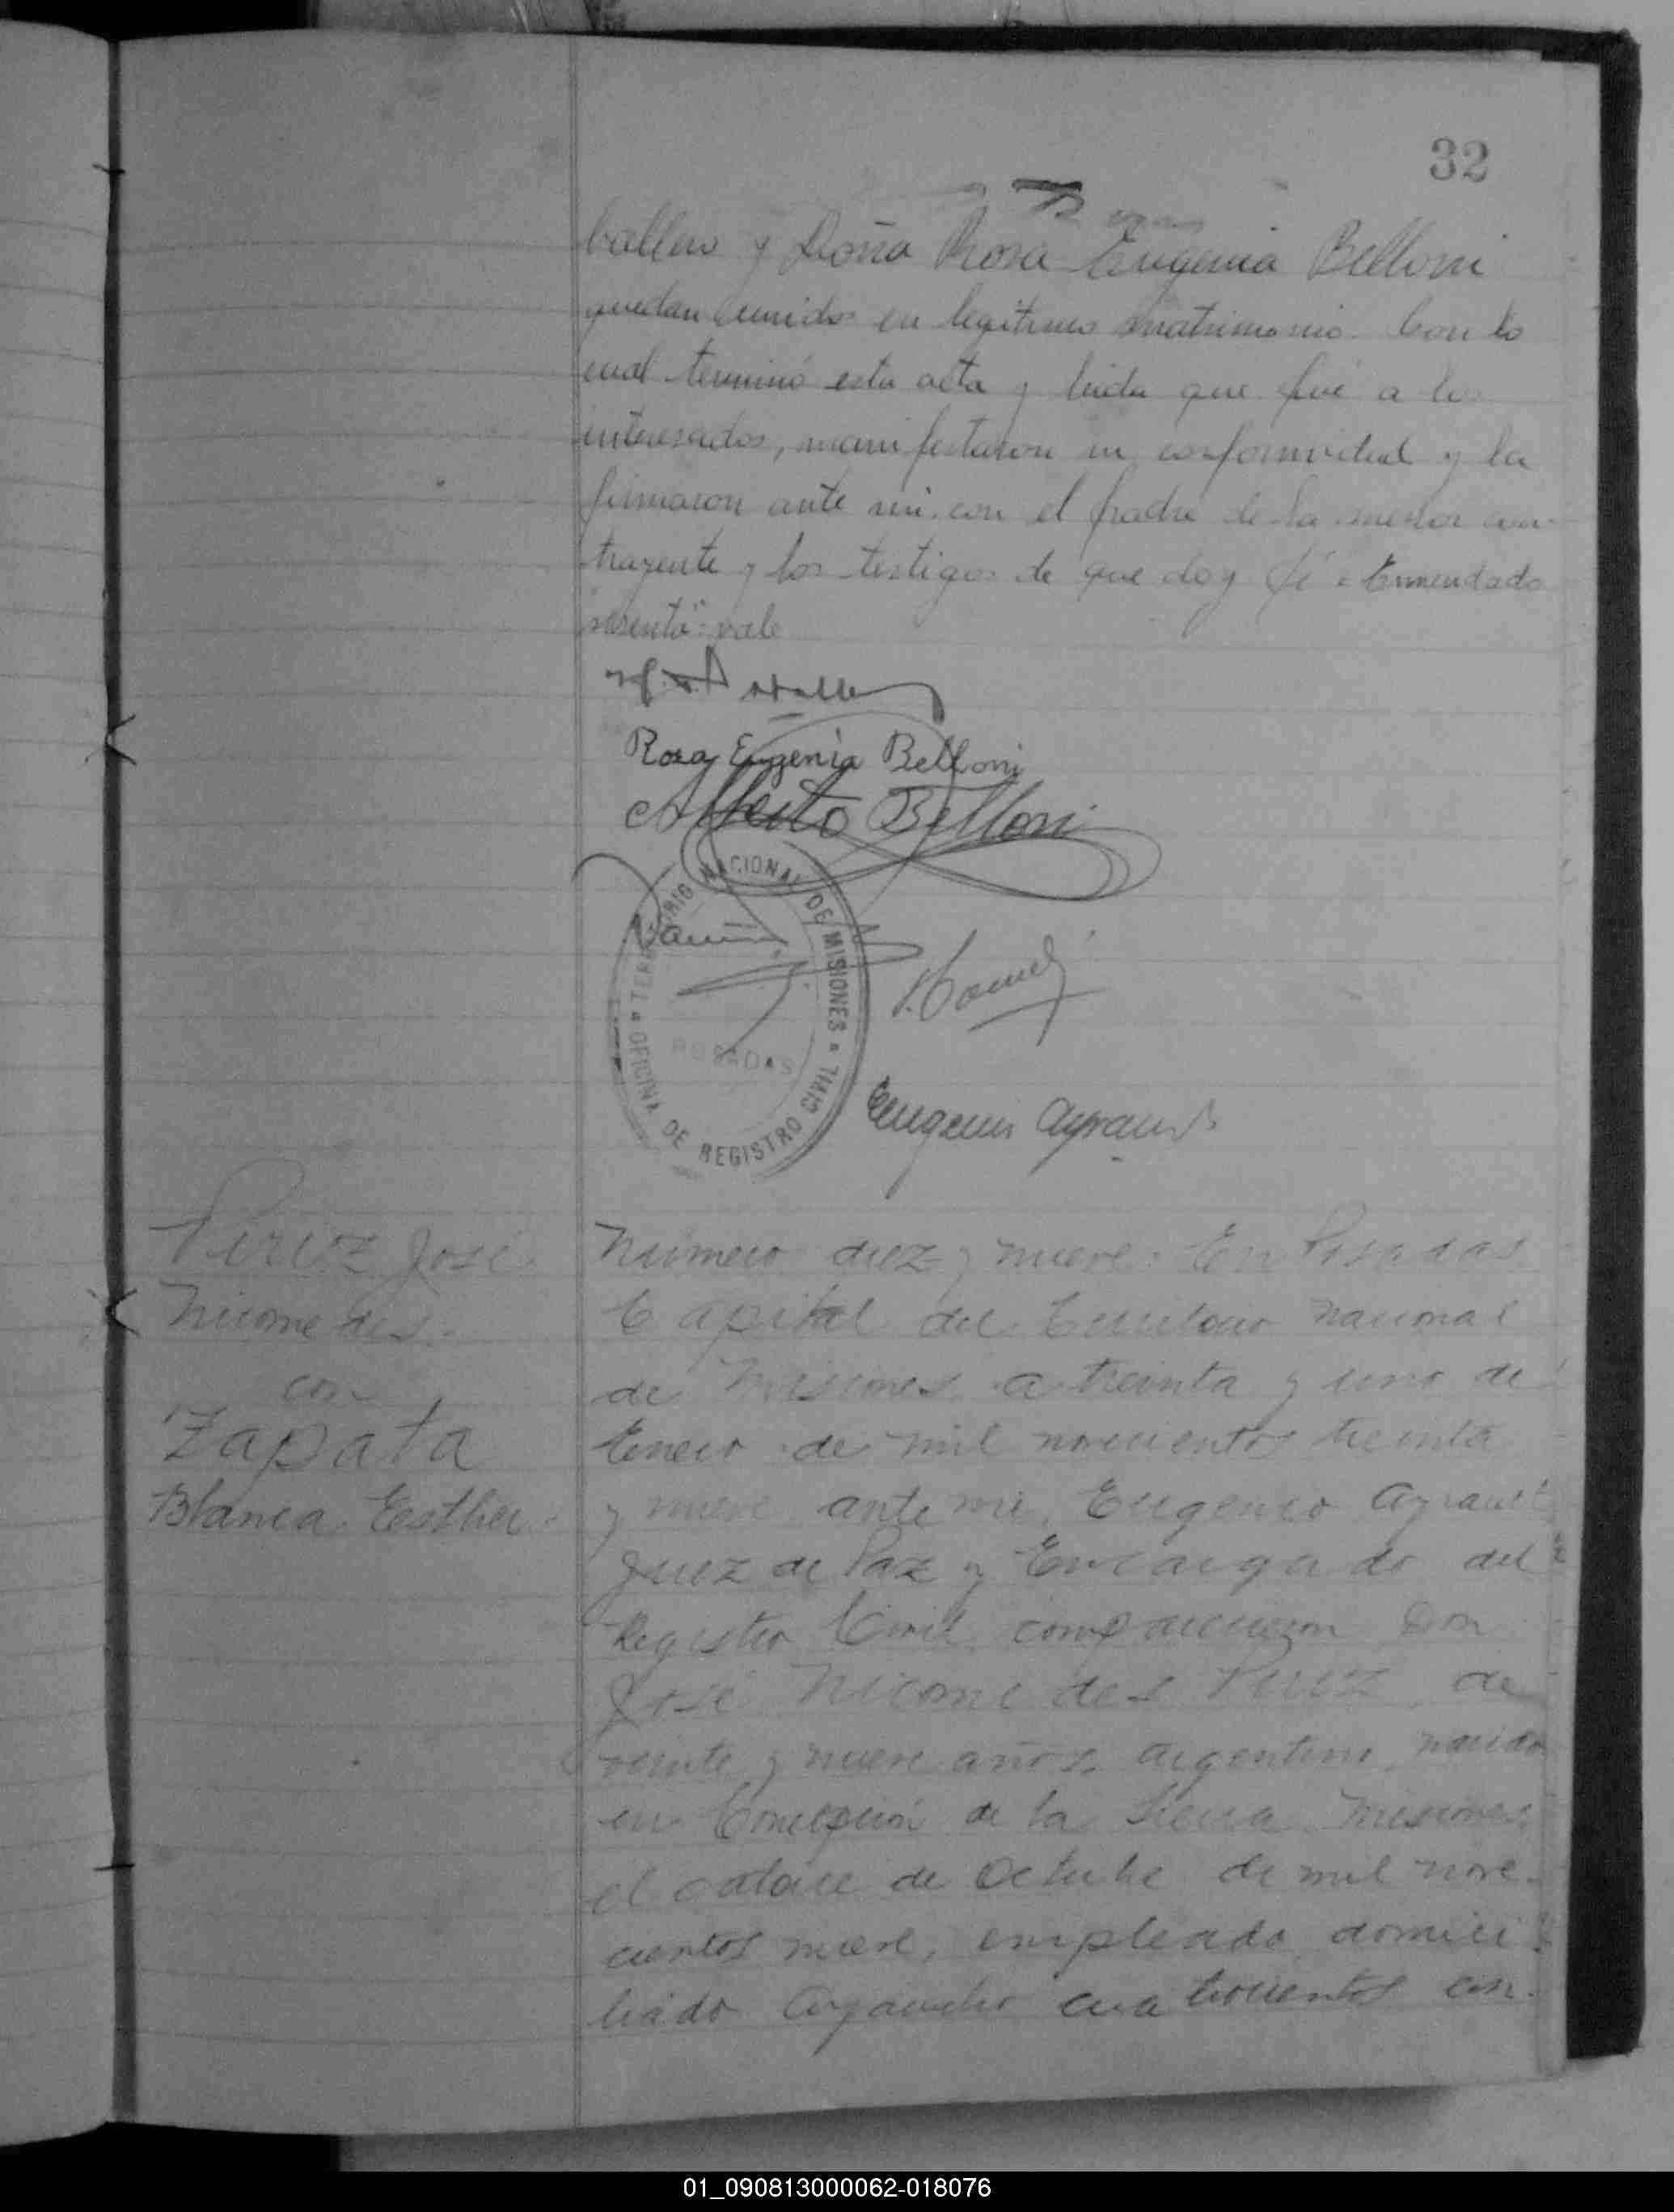 32
ballero y Doña Rosa Eugenia Belloni
quedan unidos en legitimo matrimonio. Con lo
cual terminó esta acta y leida que fué a los
interesados, manifestaron su conformidad y la
firmaron ante mi con el padre de la menor con-
trayente y los testigos de que doy fé = Enmendado
vale
Rosa Eugenia Belloni
Alberto Belloni
TERRITORIO NACIONAL DE MISIONES
POSADAS
OFICINA DE REGISTRO CIVIL
Eugenio Ayrault
Perez José
Nicomedes.
con
Zapata
Blanca Esther.
Número diez y nueve: En Posadas
Capital del Territorio Nacional
de Misiones a treinta y uno de
Enero de mil novecientos treinta
y nueve ante mi, Eugenio Ayrault
Juez de Paz y Encargado del
Registro Civil comparecieron Don
José Nicomedes Perez, de
veinte y nueve años, argentino, nacido
en Concepción de la Sierra Misiones
el catorce de Octubre de mil nove-
cientos nueve, empleado, domici-
liado Ayacucho cuatrocientos cin-
01_090813000062-018076